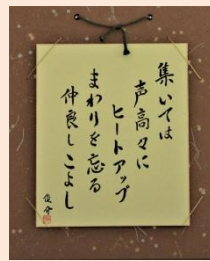 集いては
声高々に
ヒートアップ
まわりを忘る
仲良しこよし